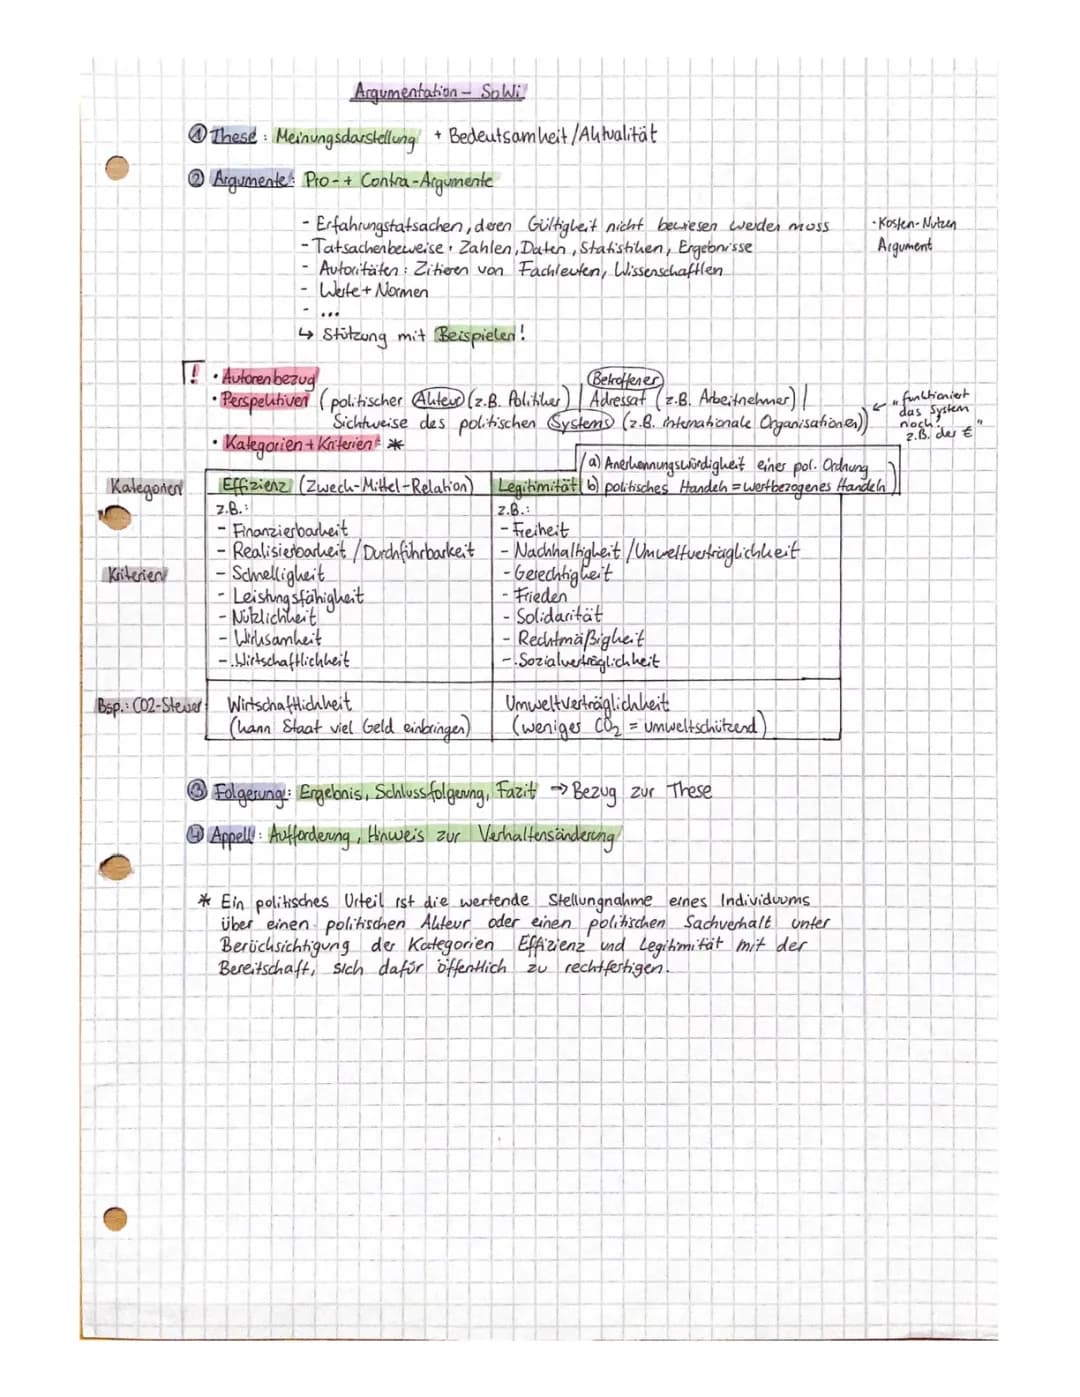 Argumentation – SoWi
① These: Meinungsdarstellung + Bedeutsamkeit/Aktualität
② Argumente: Pro- + Contra-Argumente
- Erfahrungstatsachen, deren Gültigkeit nicht bewiesen werden muss
- Kosten-Nutzen
- Tatsachenbeweise: Zahlen, Daten, Statistiken, Ergebnisse
Argument
- Autoritäten: Zitieren von Fachleuten, Wissenschaftlen
- Werte + Normen
- ...
↳ Stützung mit Beispielen!
! • Autorenbezug
Betroffener
• Perspektiven (politischer Akteur (z.B. Politiker) | Adressat (z.B. Arbeitnehmer) |
Sichtweise des politischen Systems (z.B. internationale Organisationen))
← "funktioniert
das System
noch?"
z.B. der €
• Kategorien + Kriterien *
a) Anerkennungswürdigkeit einer pol. Ordnung
Kategorien Effizienz (Zweck-Mittel-Relation) Legitimität b) politisches Handeln = wertbezogenes Handeln
z.B.: z.B.:
- Finanzierbarkeit - Freiheit
- Realisierbarkeit / Durchführbarkeit - Nachhaltigkeit / Umweltverträglichkeit
Kriterien - Schnelligkeit - Gerechtigkeit
- Leistungsfähigkeit - Frieden
- Nützlichkeit - Solidarität
- Wirksamkeit - Rechtmäßigkeit
- Wirtschaftlichkeit - Sozialverträglichkeit
Bsp.: CO2-Steuer Wirtschaftlichkeit Umweltverträglichkeit
(kann Staat viel Geld einbringen) (weniges CO₂ = umweltschützend)
③ Folgerung: Ergebnis, Schlussfolgerung, Fazit → Bezug zur These
④ Appell: Aufforderung, Hinweis zur Verhaltensänderung
* Ein politisches Urteil ist die wertende Stellungnahme eines Individuums
über einen politischen Akteur oder einen politischen Sachverhalt unter
Berücksichtigung der Kategorien Effizienz und Legitimität mit der
Bereitschaft, sich dafür öffentlich zu rechtfertigen.